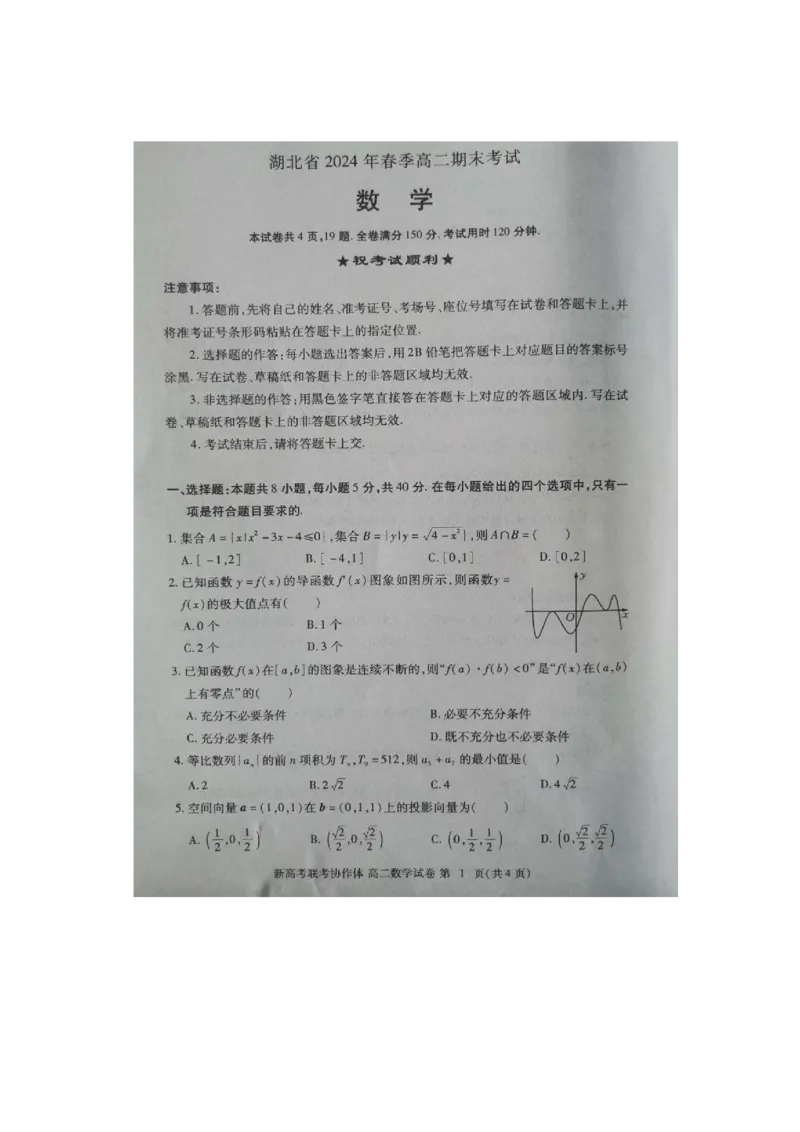 湖北省 2024 年春季高二期末考试
数 学
本试卷共 4 页,19 题. 全卷满分 150 分. 考试用时 120 分钟.
★祝考试顺利★
注意事项:
1. 答题前,先将自己的姓名、准考证号、考场号、座位号填写在试卷和答题卡上,并
将准考证号条形码粘贴在答题卡上的指定位置.
2. 选择题的作答:每小题选出答案后,用 2B 铅笔把答题卡上对应题目的答案标号
涂黑. 写在试卷、草稿纸和答题卡上的非答题区域均无效.
3. 非选择题的作答:用黑色签字笔直接答在答题卡上对应的答题区域内. 写在试
卷、草稿纸和答题卡上的非答题区域均无效.
4. 考试结束后,请将答题卡上交.
一、选择题:本题共 8 小题,每小题 5 分,共 40 分. 在每小题给出的四个选项中,只有一
项是符合题目要求的.
1. 集合 A = {x|x² -3x -4≤0},集合 B = {y|y = √(4-x²)},则 A∩B = ( )
A. [ -1,2] B. [ -4,1] C. [0,1] D. [0,2]
2. 已知函数 y =f(x)的导函数 f′(x)图象如图所示,则函数 y =
f(x)的极大值点有( )
A. 0 个 B. 1 个
C. 2 个 D. 3 个
y
O
x
3. 已知函数 f(x)在[a,b]的图象是连续不断的,则“f(a)·f(b) <0”是“f(x)在(a,b)
上有零点”的( )
A. 充分不必要条件 B. 必要不充分条件
C. 充分必要条件 D. 既不充分也不必要条件
4. 等比数列{aₙ}的前 n 项积为 Tₙ,T₉ =512,则 a₃ +a₇ 的最小值是( )
A. 2 B. 2√2 C. 4 D. 4√2
5. 空间向量 a =(1,0,1)在 b =(0,1,1)上的投影向量为( )
A. (1/2,0,1/2) B. (√2/2,0,√2/2) C. (0,1/2,1/2) D. (0,√2/2,√2/2)
新高考联考协作体 高二数学试卷 第 1 页(共 4 页)